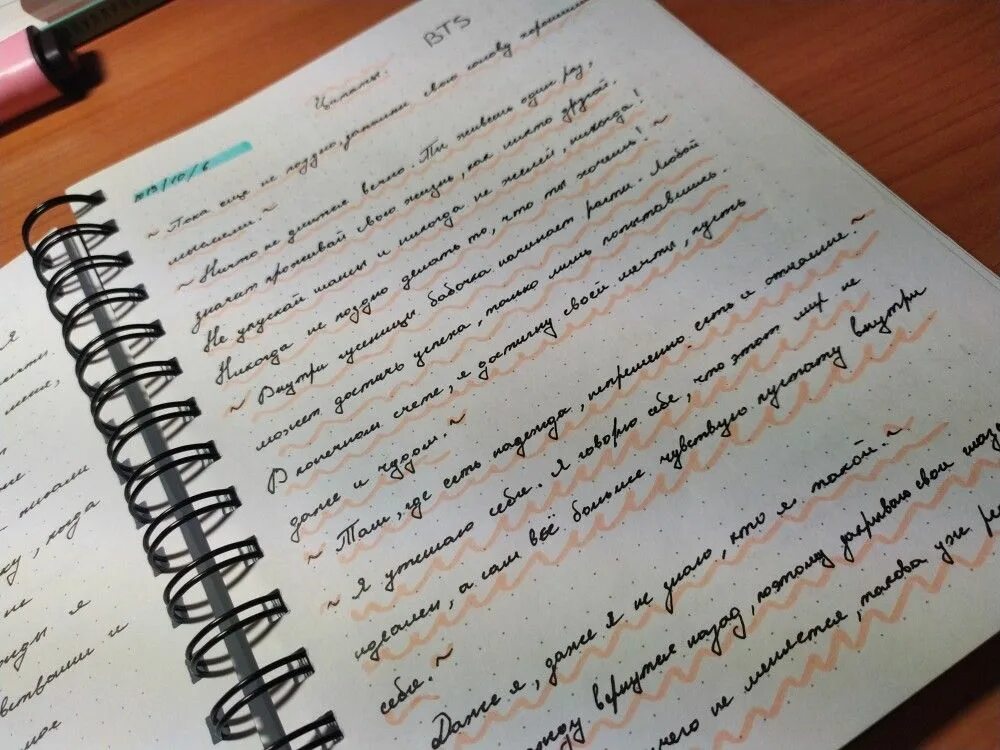 BTS
Цитаты.
~ Пока еще не поздно, заполни свою голову хорошими
~
~ Ничто не длится вечно. Ты живёшь один раз,
значит проживай свою жизнь, как никто другой.
Не упускай шансы и никогда не жалей, никогда!
Никогда не поздно делать то, что ты хочешь! ~
~ Внутри гусеницы бабочка начинает расти. Любой
может достичь успеха, только лишь попытавшись.
В конечном счете, я достигну своей мечты, пусть
даже и чудом. ~
~ Там, где есть надежда, непременно есть и отчаяние. ~
~ Я утешаю себя. Я говорю себе, что этот мир не
идеален, а сам всё больше чувствую пустоту внутри
себя. ~
Даже я, даже я не знаю, кто я такой ~
вернуться назад, поэтому закрываю свои
не меняется, такова уже
я
мне,
писали
когда
не
я
и